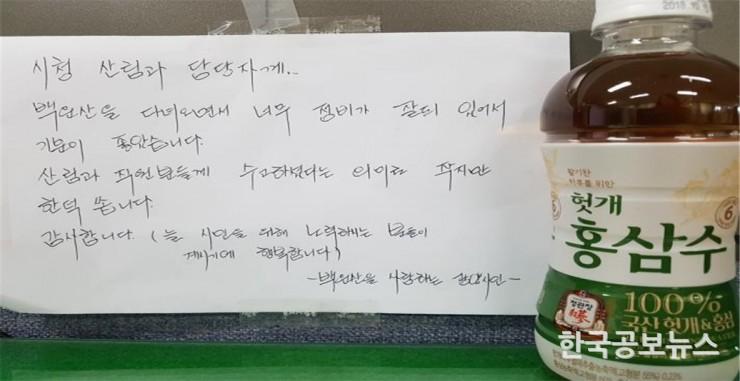 시청 산림과 담당자께..
백원산을 다녀오면서 너무 정비가 잘되 있어서
기분이 좋았습니다.
산림과 직원분들께 수고하셨다는 의미로 작지만
한턱 쏩니다.
감사합니다. (늘 시민을 위해 노력하는 분들이
계시기에 행복합니다)
-백원산을 사랑하는 시민-
활기찬
하루를 위한
헛개
홍삼수
6
정관장
100%
국산 헛개&홍삼
한국공보뉴스